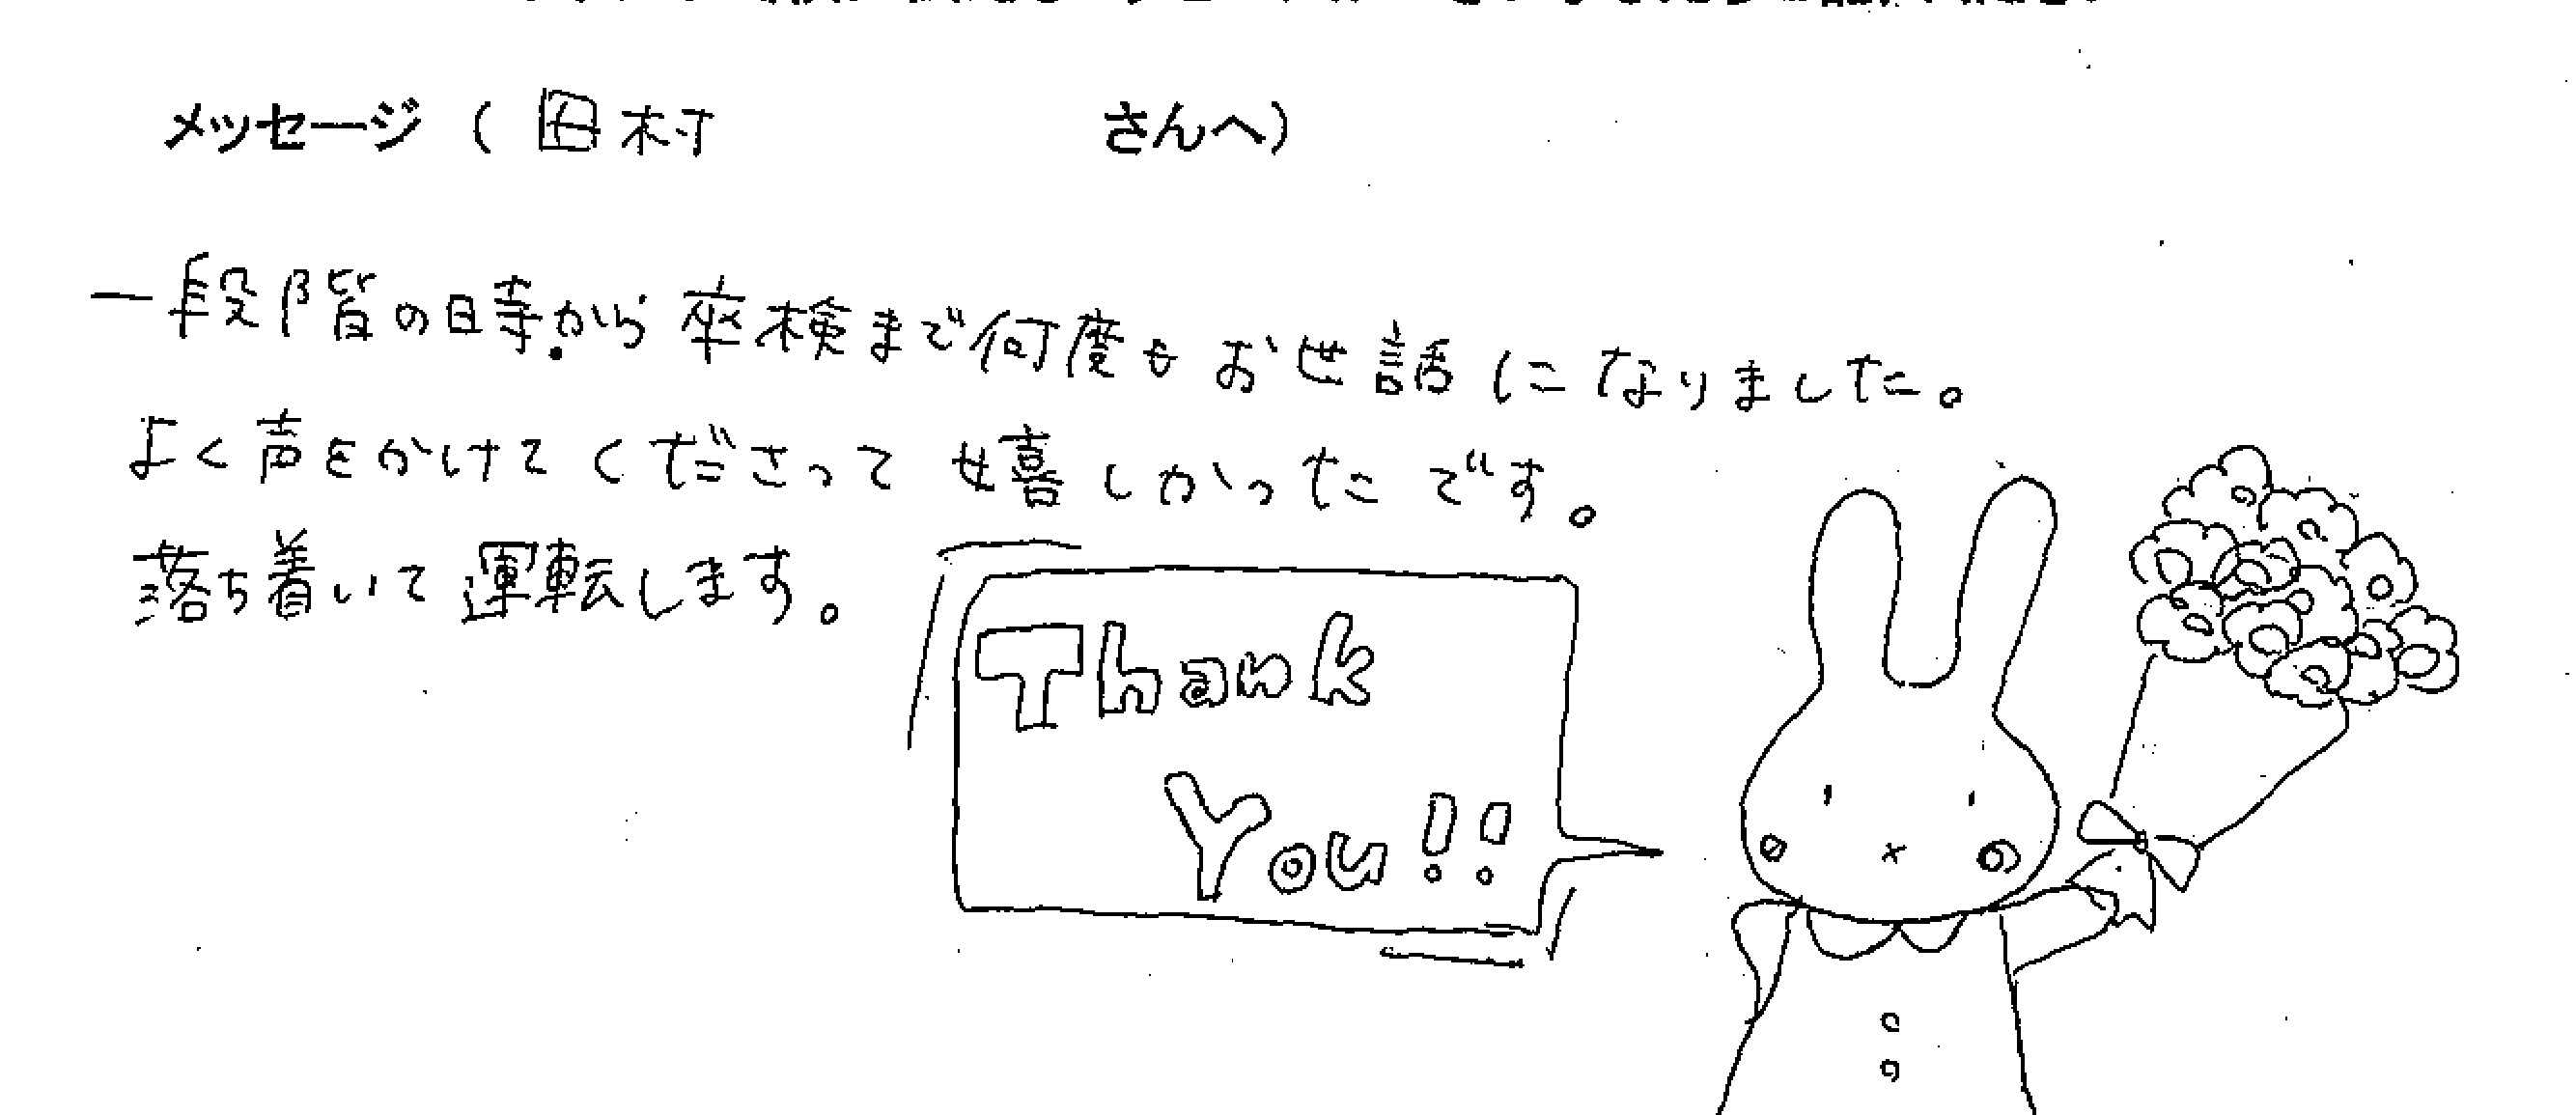 メッセージ（田村 さんへ）
一段階の時から卒検まで何度もお世話になりました。
よく声をかけてくださって嬉しかったです。
落ち着いて運転します。
Thank
You!!